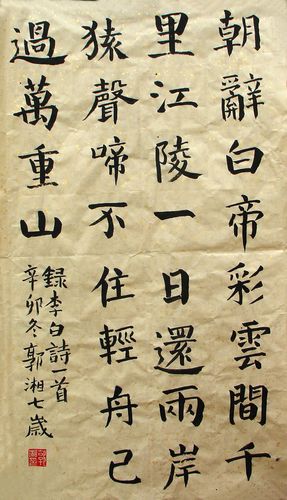 朝辭白帝彩雲間千
里江陵一日還兩岸
猿聲啼不住輕舟已
過萬重山
録李白詩一首
辛卯冬郭湘七歲